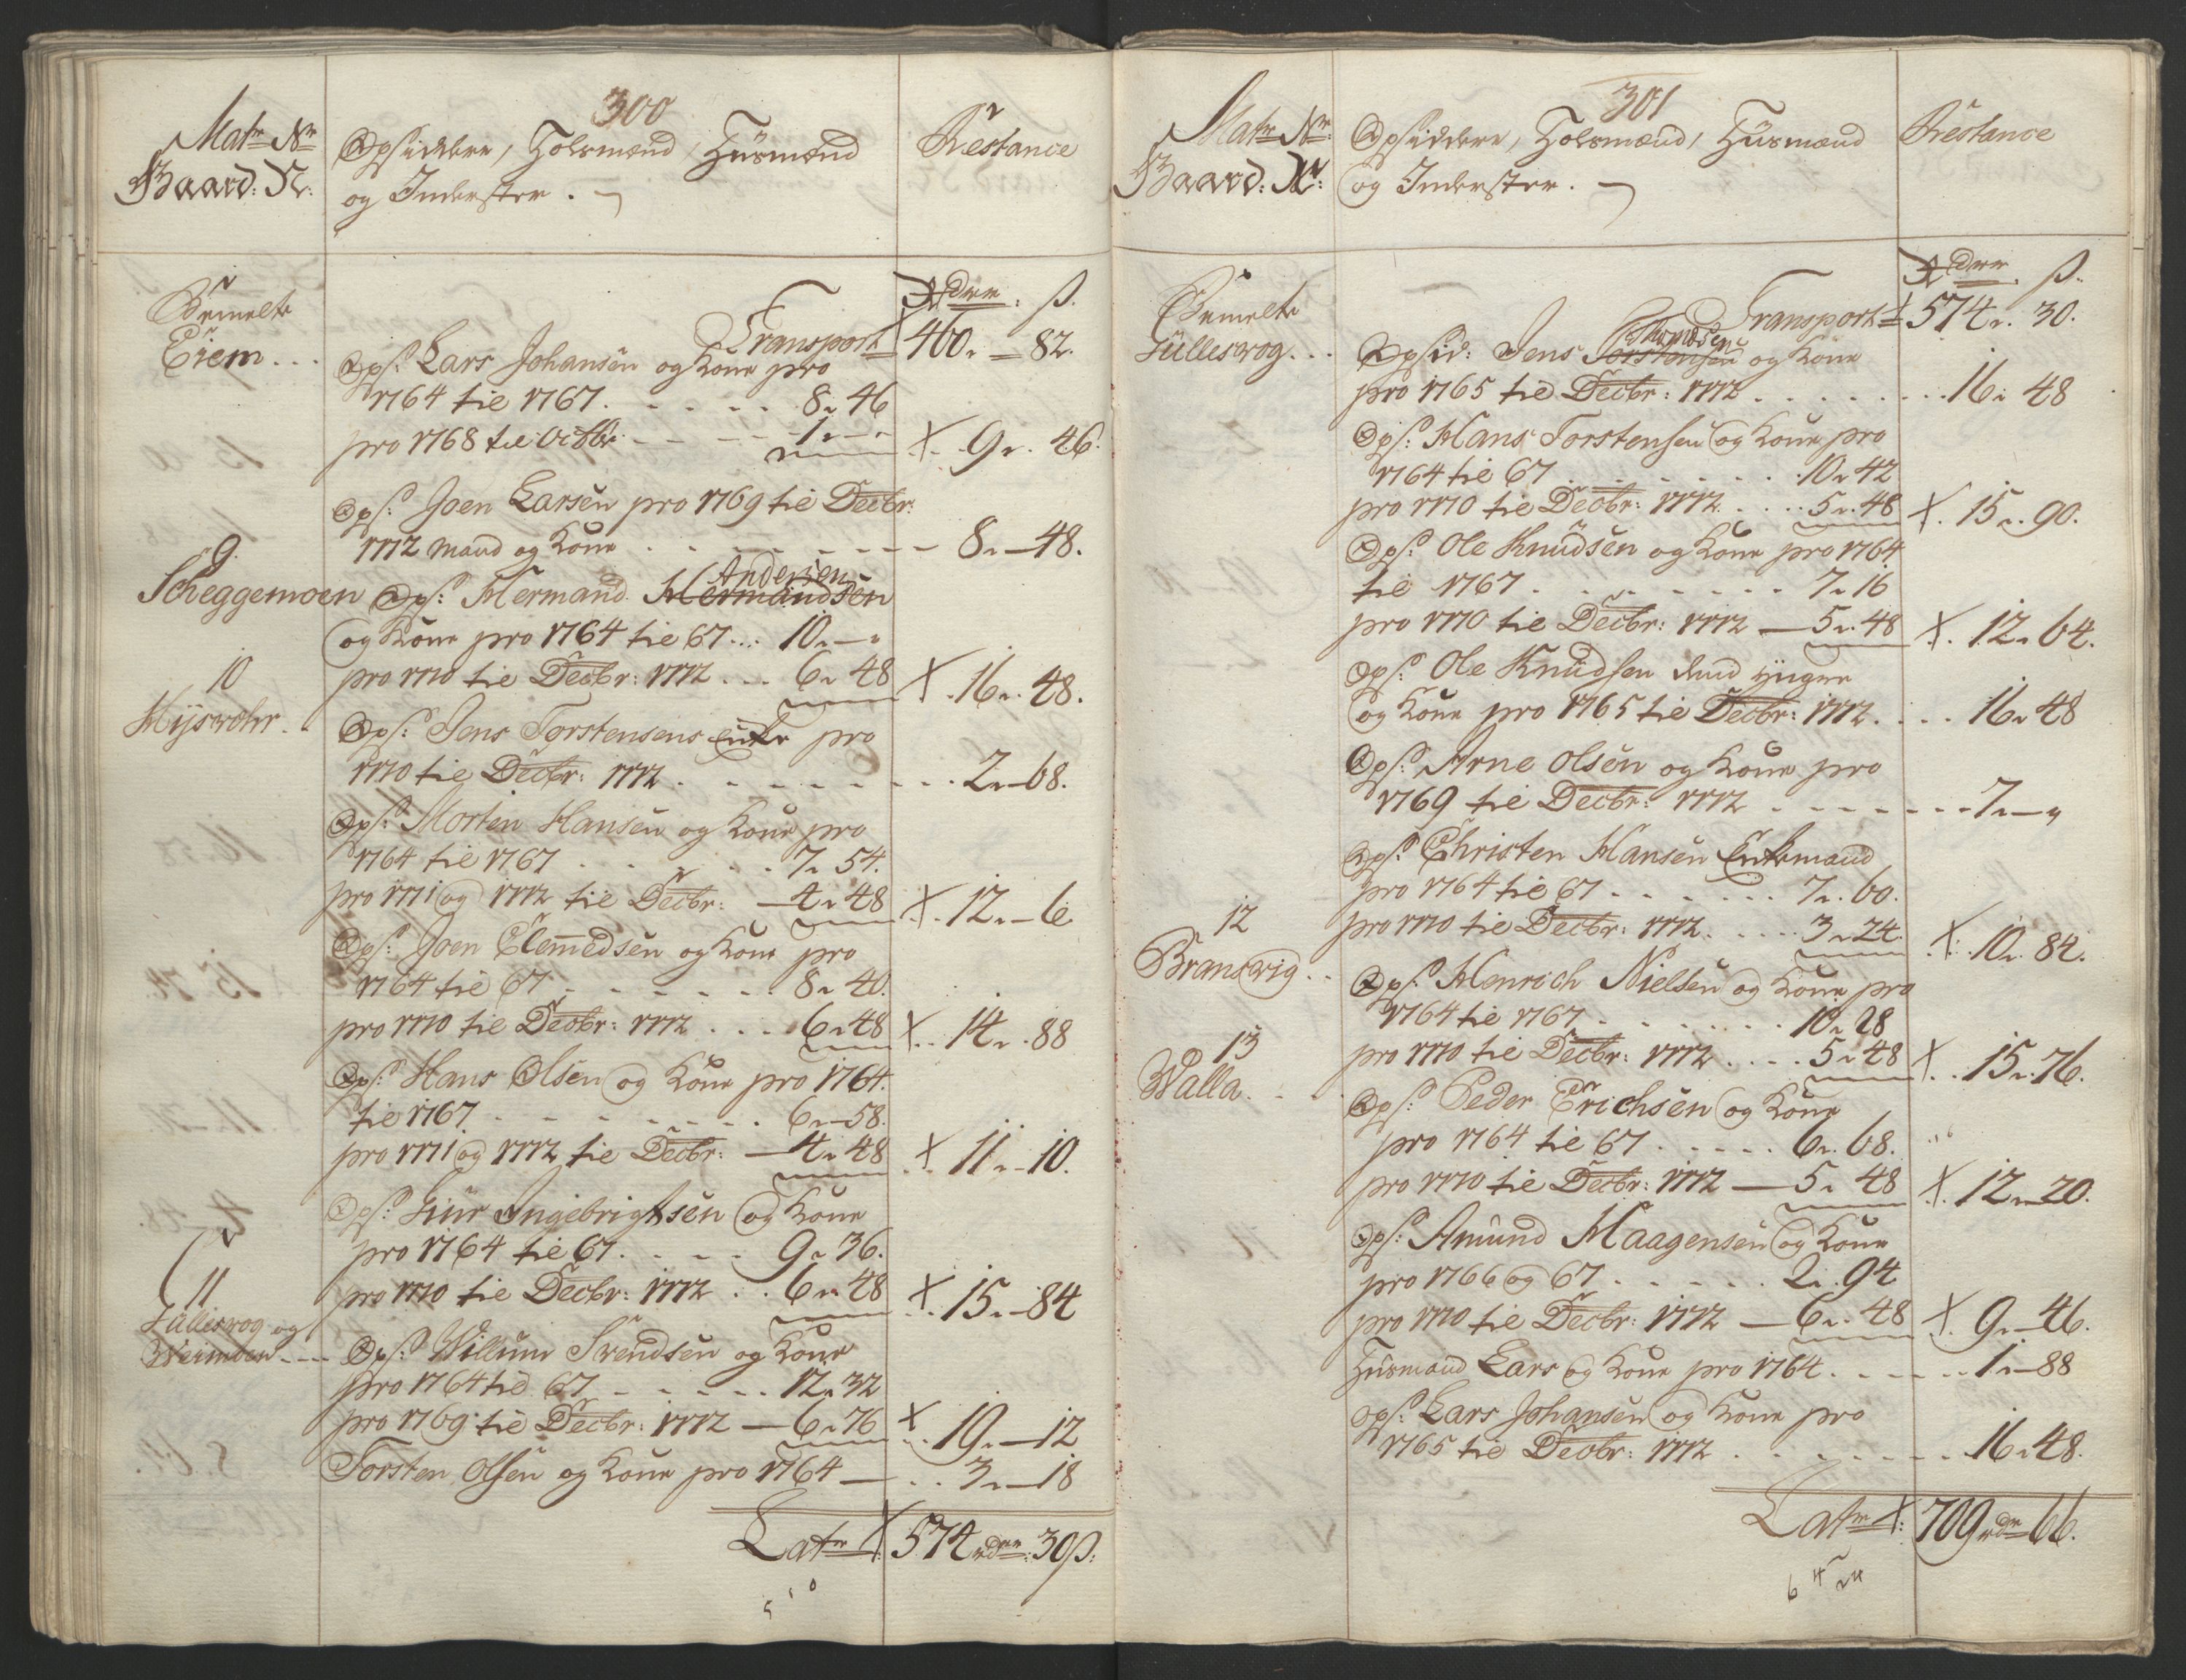 300
Matr Nr
Gaard: N:
Opsiddere, Holsmænd, Huusmænd
og Inderster.
Restance
Bemelte
Eiem...
Rdr. ß.
Transport 460. 82.
Ops: Lars Johansen og Kone pro
1764 til 1767. 8. 46
pro 1768 til Octbr 1. — X. 9. 46.
Ops: Joen Larsen pro 1769 til Decbr:
1772 Mand og Kone 8. 48.
9
Scheggemoen
Andersen
Ops: Hermand Hermandsen
og Kone pro 1764 til 67... 10. —
10
pro 1770 til Decbr: 1772... 6. 48 X. 16. 48.
Ops: Jens Torstensens Enke pro
1770 til Decbr: 1772. 2. 68.
Ops: Morten Hansen og Kone pro
1764 til 1767 7. 54.
pro 1771 og 1772 til Decbr: 4. 48 X. 12. 6.
Ops: Joen Clemmedsen og Kone pro
1764 til 67 8. 40.
pro 1770 til Decbr: 1772... 6. 48 X. 14. 88
Ops: Hans Olsen og Kone pro 1764.
til 1767. 6. 58.
pro 1771 og 1772 til Decbr: 4. 48 X. 11. 10.
Ops: Siur Ingebrigtsen og Kone
pro 1764 til 67. 9. 36.
pro 1770 til Decbr: 1772.. 6. 48 X. 15. 84
11
og
Ops: Willum Svendsen og Kone
pro 1764 til 67 12. 32
pro 1769 til Decbr: 1772 — 6. 76 X. 19. 12
Torsten Olsen og Kone pro 1764 — 3. 18
Latr X 574 rdr: 30 ß:
301
Matr Nr:
Gaard: Nr:
Opsiddere, Holsmænd, Huusmænd
og Inderster.
Restance
Rdr. ß.
Bemelte
Transport 574. 30.
Thomæsen
Opsid: Jens Torstensen og Kone
pro 1765 til Decbr: 1772 16. 48
Ops: Hans Torstensen og Kone pro
1764 til 67 10. 42
pro 1770 til Decbr: 1772. 5. 48 X. 15. 90.
Ops: Ole Knudsen og Kone pro 1764
til 1767 7. 16
pro 1770 til Decbr: 1772 — 5. 48 X. 12. 64.
Ops: Ole Knudsen den yngre
og Kone pro 1765 til Decbr: 1772. 16. 48
Ops: Arne Olsen og Kone pro
1769 til Decbr: 1772 7. —
Ops: Christen Hansen Enkemand
pro 1764 til 67 7. 60.
12
Branswig..
pro 1770 til Decbr: 1772. 3. 24. X. 10. 84.
Ops: Henrich Nielsen og Kone pro
1764 til 1767 10. 28
13
Walla.
pro 1770 til Decbr: 1772.... 5. 48 X. 15. 76.
Ops: Peder Erichsen og Kone
pro 1764 til 67 6. 68.
pro 1770 til Decbr: 1772 — 5. 48 X. 12. 20.
Ops: Amund Haagensen og Kone
pro 1766 og 67 2. 94
pro 1770 til Decbr: 1772 — 6. 48 X. 9. 46.
Huusmand Lars og Kone pro 1764. 1. 88
Ops: Lars Johansen og Kone pro
1765 til Decbr: 1772 16. 48.
Latr X: 709 rdr 66.